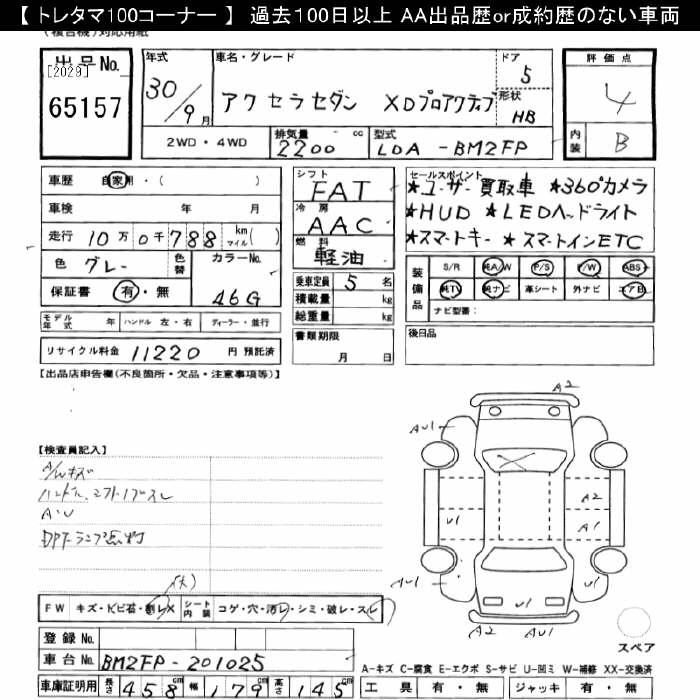 【 トレタマ100コーナー 】 過去100日以上 AA出品歴or成約歴のない車両
(複合機)対応用紙
出品No.
[2029]
65157
年式
30/9月
車名・グレード
アクセラセダン XDプロアクティブ
ドア
5
形状
HB
評価点
4
内装
B
2WD・4WD
排気量
2200
cc
型式
LDA-BM2FP
車歴 自家用・( )
車検 年 月
走行 10万0千788 km マイル( )
色 グレー
色替
カラーNo.
46G
保証書 有・無
シフト
FAT
冷房
AAC
燃料
軽油
乗車定員 5 名
積載量 kg
総重量 kg
書類期限
月 日
セールスポイント
★ユーザー買取車 ★360°カメラ
★HUD ★LEDヘッドライト
★スマートキー ★スマートインETC
装備品
S/R 純A/W P/S P/W ABS
純TV 純ナビ 革シート 外ナビ エアB
ナビ型番:
後日品
モデル年式 年 ハンドル 左・右 ディーラー・並行
リサイクル料金 11220 円 預託済
【出品店申告欄(不良箇所・欠品・注意事項等)】
【検査員記入】
A/Wキズ
ハンドル、シフトノブスレ
A・U
DPFランプ点灯
A2
AU1
U1
A2
A1
AU1
U1
U1
A2
AU1
スペア
(大)
FW キズ・トビ石・割レX シート内装 コゲ・穴・汚レ・シミ・破レ・スレ
登録No.
車台No. BM2FP-201025
車庫証明用 長さ 458cm 幅 179cm 高さ 145cm
A-キズ C-腐食 E-エクボ S-サビ U-凹ミ W-補修 XX-交換済
工具 有・無 ジャッキ 有・無